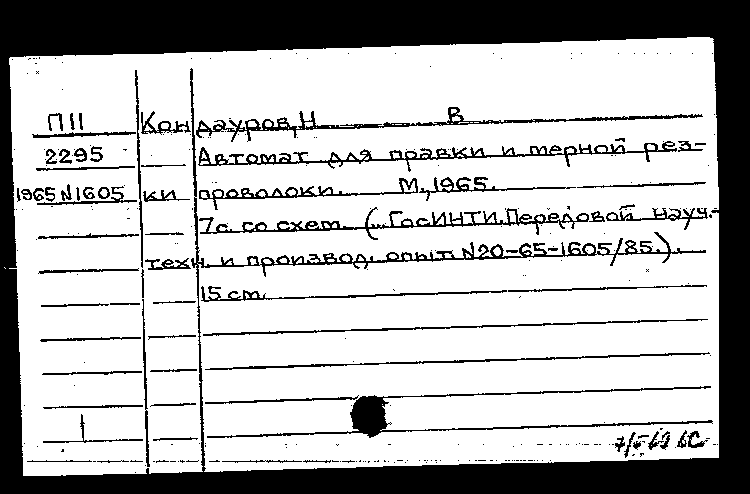 П11 Кондауров, Н В
2295 Автомат для правки и мерной рез-
1965 N1605 ки проволоки. М., 1965.
7с. со схем. (...ГосИНТИ. Передовой науч.-
техн. и производ. опыт N20-65-1605/85.).
15 см.